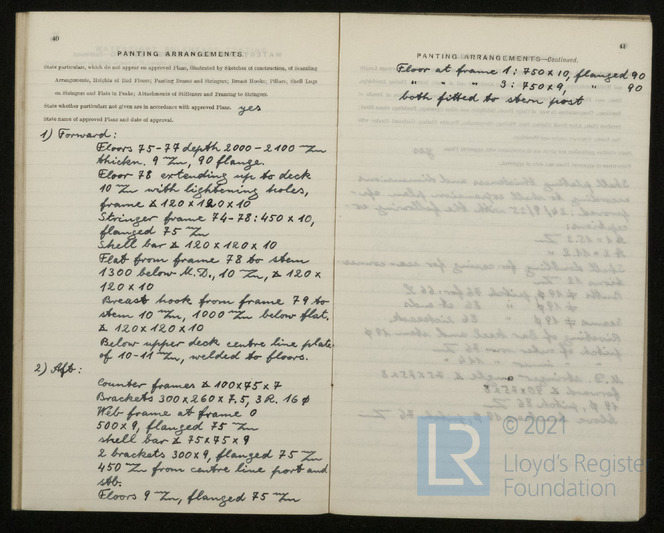 40
PANTING ARRANGEMENTS
State particulars, which do not appear on approved Plans, illustrated by Sketches of construction, of Scantling
Arrangements, Heights of End Floors; Panting Beams and Stringers; Breast Hooks; Pillars, Shell Lugs
on Stringers and Flats in Peaks; Attachments of Stiffeners and Framing to Stringers.
State whether particulars not given are in accordance with approved Plans. yes
State name of approved Plans and date of approval.
1) Forward:
Floors 75-77 depth 2000-2100 m/m
thickn. 9 m/m, 90 flange.
Floor 78 extending up to deck
10 m/m with lightening holes,
frame ∠ 120 x 120 x 10
Stringer frame 74-78: 450 x 10,
flanged 75 m/m
Shell bar ∠ 120 x 120 x 10
Flat from frame 78 to stem
1300 below M.D., 10 m/m, ∠ 120 x
120 x 10
Breast hook from frame 79 to
stem 10 m/m, 1000 m/m below flat.
∠ 120 x 120 x 10
Below upper deck centre line plate
of 10-11 m/m, welded to floors.
2) Aft:
Counter frames ∠ 100 x 75 x 7
Brackets 300 x 260 x 7,5, 3 R. 16 ø
Web frame at frame 0
500 x 9, flanged 75 m/m
shell bar ∠ 75 x 75 x 9
2 brackets 300 x 9, flanged 75 m/m
450 m/m from centre line port and
stb.
Floors 9 m/m, flanged 75 m/m
41
PANTING ARRANGEMENTS—Continued.
Floor at frame 1: 750 x 10, flanged 90
" " " 3: 750 x 9, " 90
both fitted to stern post
© 2021
LR
Lloyd's Register
Foundation